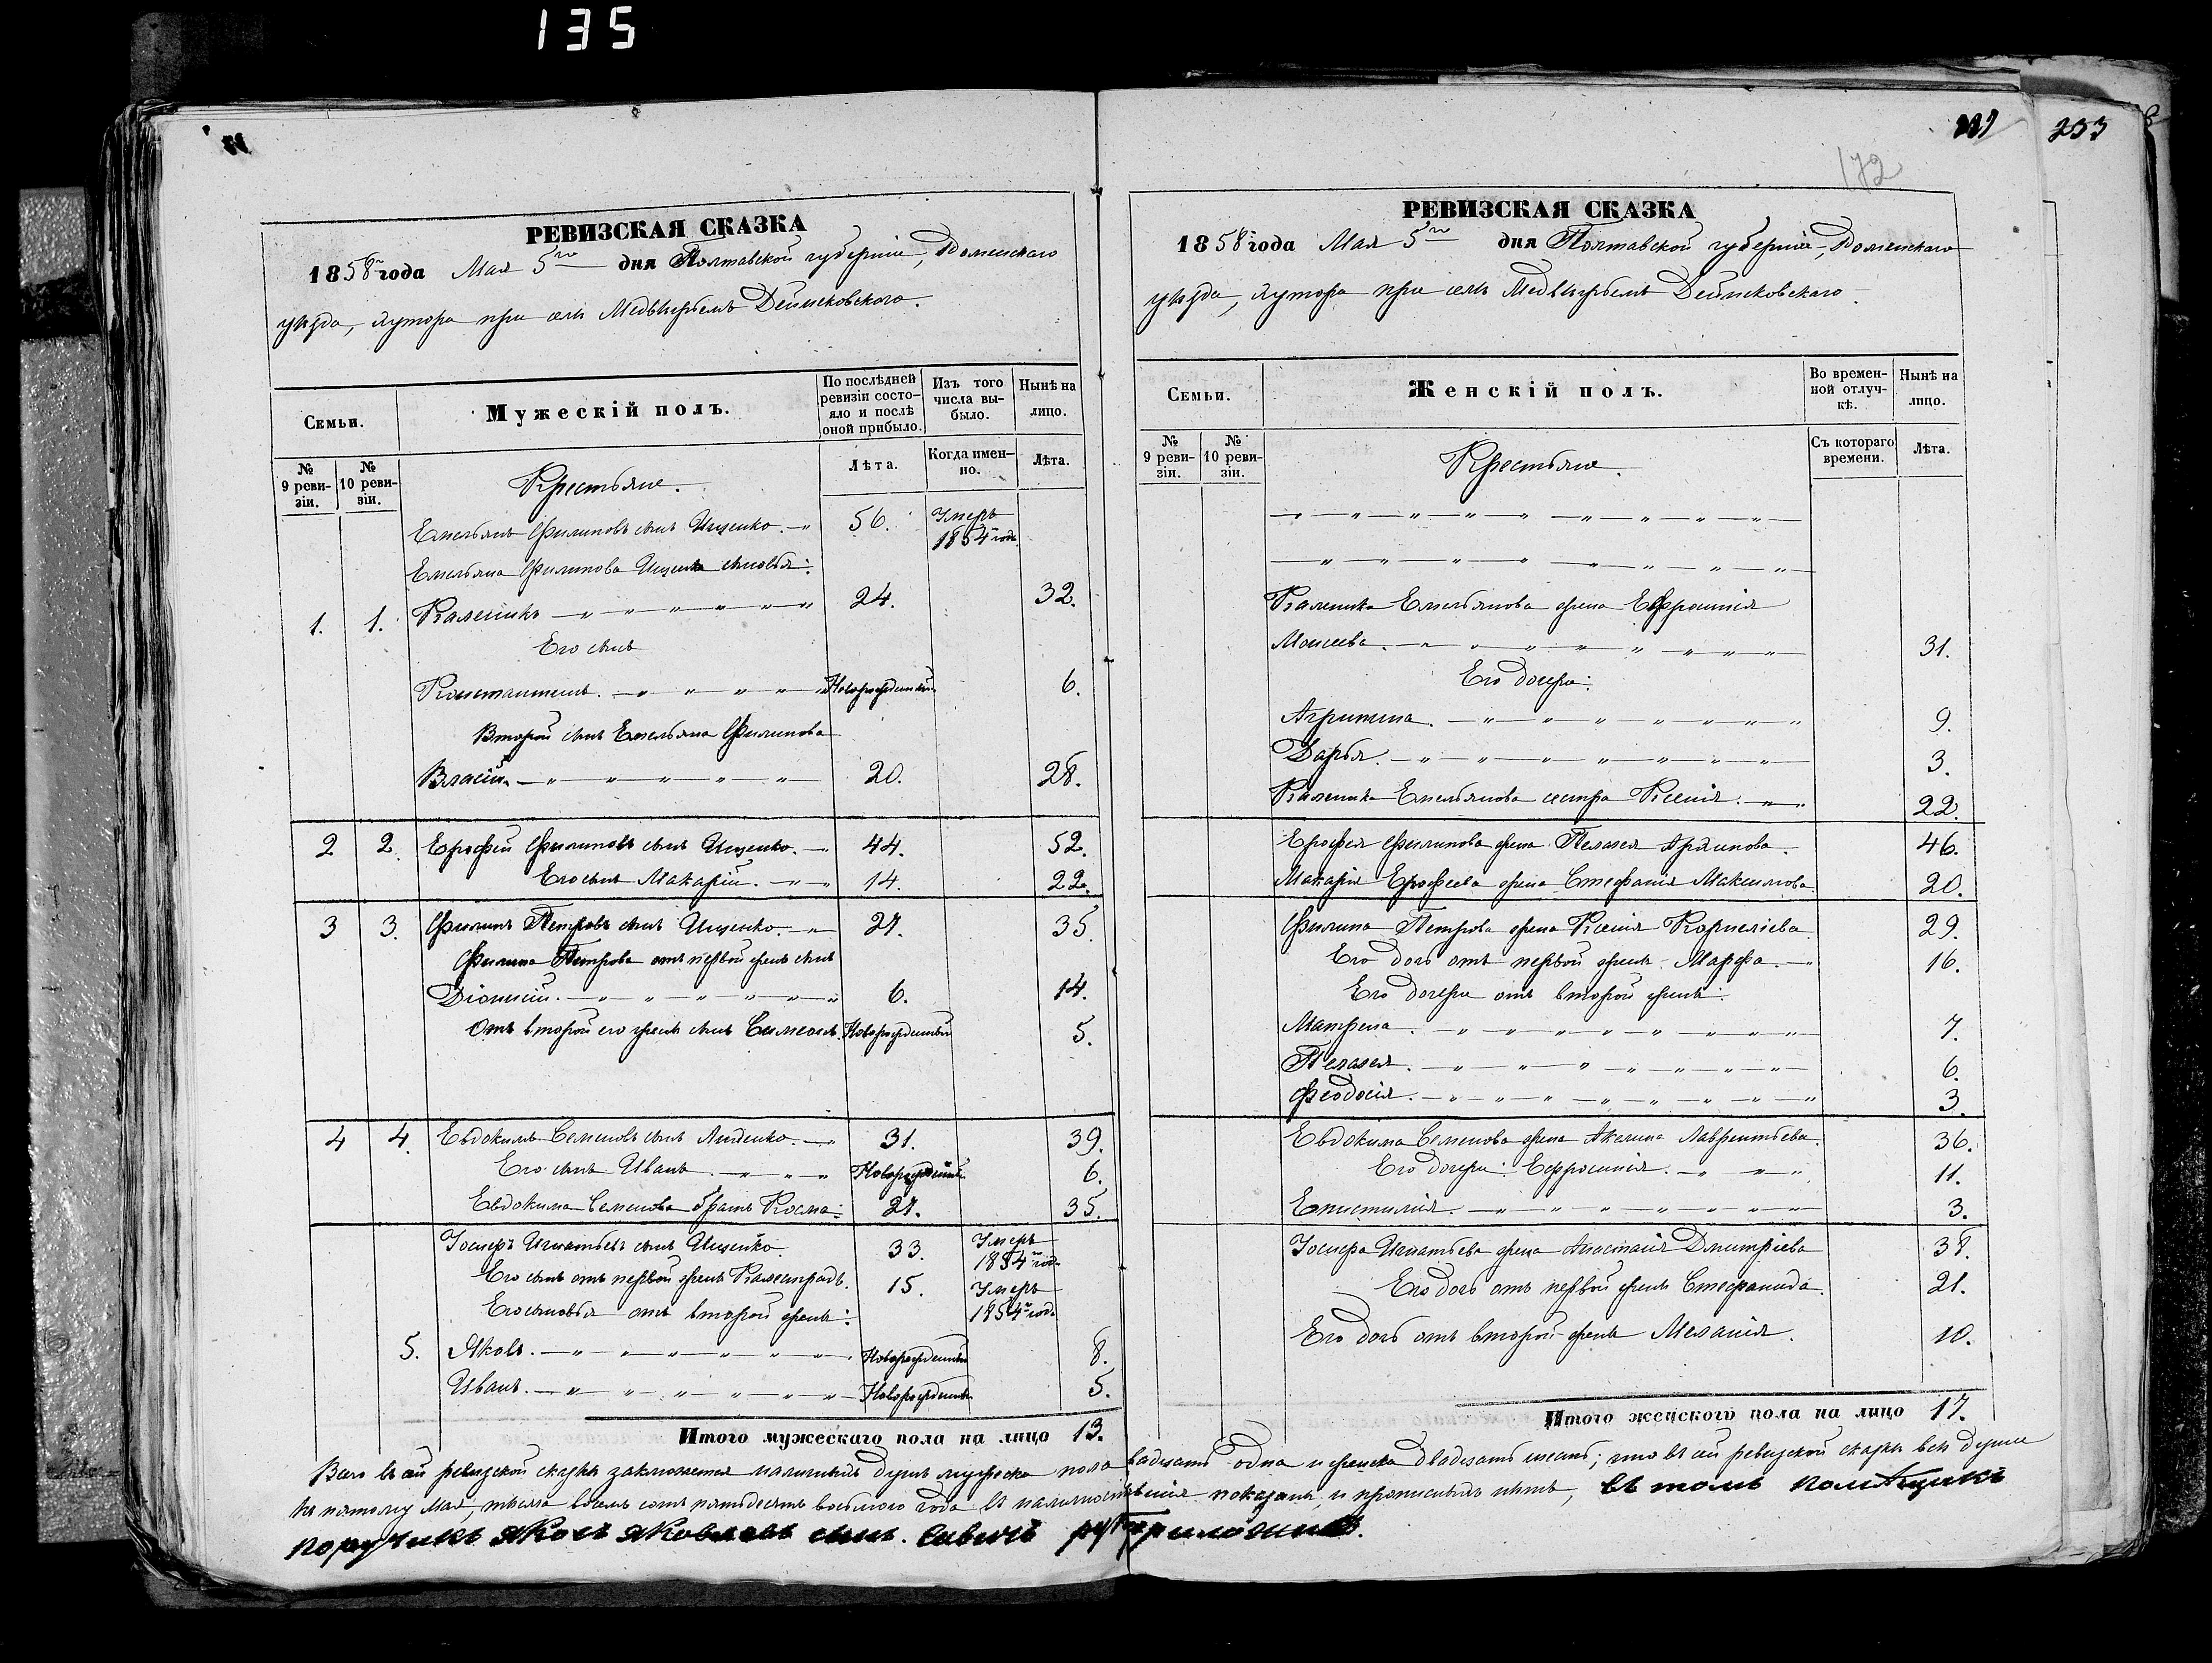 135
253
172
РЕВИЗСКАЯ СКАЗКА
1858го года Мая 5го дня Полтавской губерніи, Роменскаго
уѣзда, хутора при селѣ Медвѣжьемъ Деймековского.
Семьи.
Мужескій полъ.
По послѣдней ревизіи состояло и послѣ оной прибыло.
Изъ того числа выбыло.
Нынѣ на лицо.
№ 9 ревизіи.
№ 10 ревизіи.
Крестьяне.
Лѣта.
Когда именно.
Лѣта.
Емельянъ Филиповъ сынъ Ищенко. 56. Умеръ 1854 года
Емельяна Филипова Ищенка сыновья:
1. 1. Каленикъ 24. 32.
Его сынъ
Константинъ. Новорожденный 6.
Второй сынъ Емельяна Филипова
Власій. 20. 28.
2 2. Ерофей Филиповъ сынъ Ищенко. 44. 52.
Его сынъ Макарій. 14. 22.
3 3. Филипъ Петровъ сынъ Ищенко. 27. 35.
Филипа Петрова отъ первой жены сынъ
Діонисій. 6. 14.
Отъ второй его жены сынъ Симеонъ. Новорожденный 5.
4 4. Евдокимъ Семеновъ сынъ 31. 39.
Его сынъ Иванъ. Новорожденный 6.
Евдокима Семенова братъ Косма: 27. 35.
Іосифъ Игнатьевъ сынъ Ищенко. 33. Умеръ 1854 год
Его сынъ отъ первой жены Калистратъ. 15. Умеръ 1854 год
Его сыновья отъ второй жены:
5. Яковъ. Новорожденный 8.
Иванъ. Новорожденный 5.
Итого мужескаго пола на лицо 13.
РЕВИЗСКАЯ СКАЗКА
1858 года Мая 5го дня Полтавской губерніи, Роменскаго
уѣзда, хутора при селѣ Медвѣжьемъ Деймековского.
Семьи.
Женскій полъ.
Во временной отлучкѣ.
Нынѣ на лицо.
№ 9 ревизіи.
№ 10 ревизіи.
Крестьяне.
Съ котораго времени.
Лѣта.
Каленика Емельянова жена Ефросинія
Моисеева. 31.
Его дочери:
Агрипина. 9.
Дарья. 3.
Каленика Емельянова сестра Ксенія. 22.
Ерофея Филипова жена Пелагея 46.
Макарія Ерофеева жена Стефанія Максимова. 20.
Филипа Петрова жена Ксенія Корнеліева 29.
Его дочь отъ первой жены Марфа. 16.
Его дочери отъ второй жены:
Матрена. 7.
Пелагея. 6.
Феодосія. 3.
Евдокима Семенова жена Акелина Лаврентьева. 36.
Его дочери: Ефросинія. 11.
Епистимія. 3.
Іосифа Игнатьева жена Анастасія Дмитріева 38.
Его дочь отъ первой жены Стефанида. 21.
Его дочь отъ второй жены Меланія. 10.
Итого женского пола на лицо 17.
Всего въ сей ревизской сказкѣ заключается наличныхъ душъ мужеска пола двадцать одна и женска двадцать шесть; что въ сей ревизской сказкѣ всѣ души
къ пятому Мая, тысяча восемь сотъ пятьдесятъ восьмого года въ наличности показаны, и прописныхъ нѣтъ, въ томъ помѣщикъ
поручикъ Яковъ Яковлевъ сынъ Савичъ руку приложилъ.